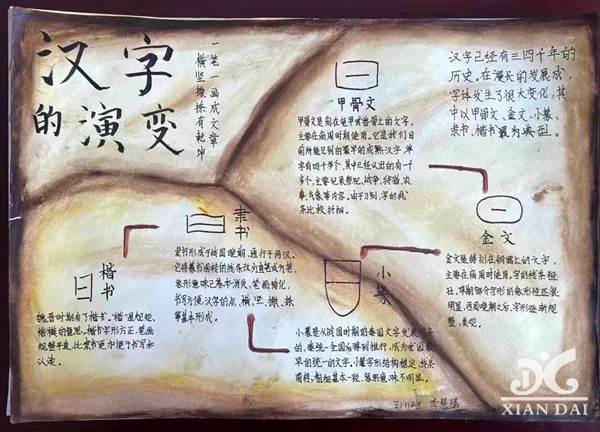 汉字
的演变
一笔一画成文章
横竖撇捺有乾坤
汉字已经有三四千年的
历史。在漫长的发展成,
字体发生了很大变化,其
中以甲骨文、金文、小篆、
隶书、楷书最为典型。
甲骨文
甲骨文是刻在龟甲或兽骨上的文字。
主要在商周时期使用。它是我们目
前所能见到的最早的成熟汉字,单
字有四千多个,其中已经认出的有一千
多个,主要记录祭祀、战争、狩猎、农
事、气象等内容。由于刀刻,字的线
条比较纤细。
金文
金文是铸刻在铜器上的文字,
主要在商周时使用。字的线条粗
壮,早期部分字的象形性还很
明显,西周晚期之后,字形逐渐规
整、美观。
小篆
小篆是从战国时期的秦国文字发展而来
的,秦统一全国后得到推行,成为我国最
早的统一的文字。小篆字形结构稳定,线条
圆转,粗细基本一致,象形意味不明显。
隶书
隶书形成于战国晚期,通行于两汉。
它将篆书圆转的线条改为直笔或方笔,
象形意味已基本消失,笔画简化,
书写方便,汉字的点、横、竖、撇、捺
等基本形成。
楷书
魏晋时期有了楷书。“楷”是规矩、
楷模的意思。楷书字形方正,笔画
规整平直,比隶书更方便于书写和
认读。
XIAN DAI